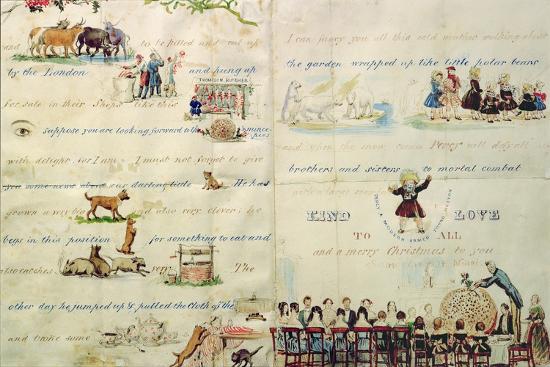 and to be killed and cut up
by the London and hung up
THOMSON BUTCHER
for sale in their Shops like this
Suppose you are looking forward to the mince
pies
with delight, for I am I must not forget to give
you some news about our darling little He has
grown a very big and also very clever; he
begs in this position for something to eat and
also catches very The
other day he jumped up & pulled the Cloth off the
and broke some
I can fancy you all this cold weather walking about
the garden wrapped up like little polar bears
and when the snow comes Percy will defy all
brothers and sisters to mortal combat
KIND LOVE
TO ALL
and a merry Christmas to you